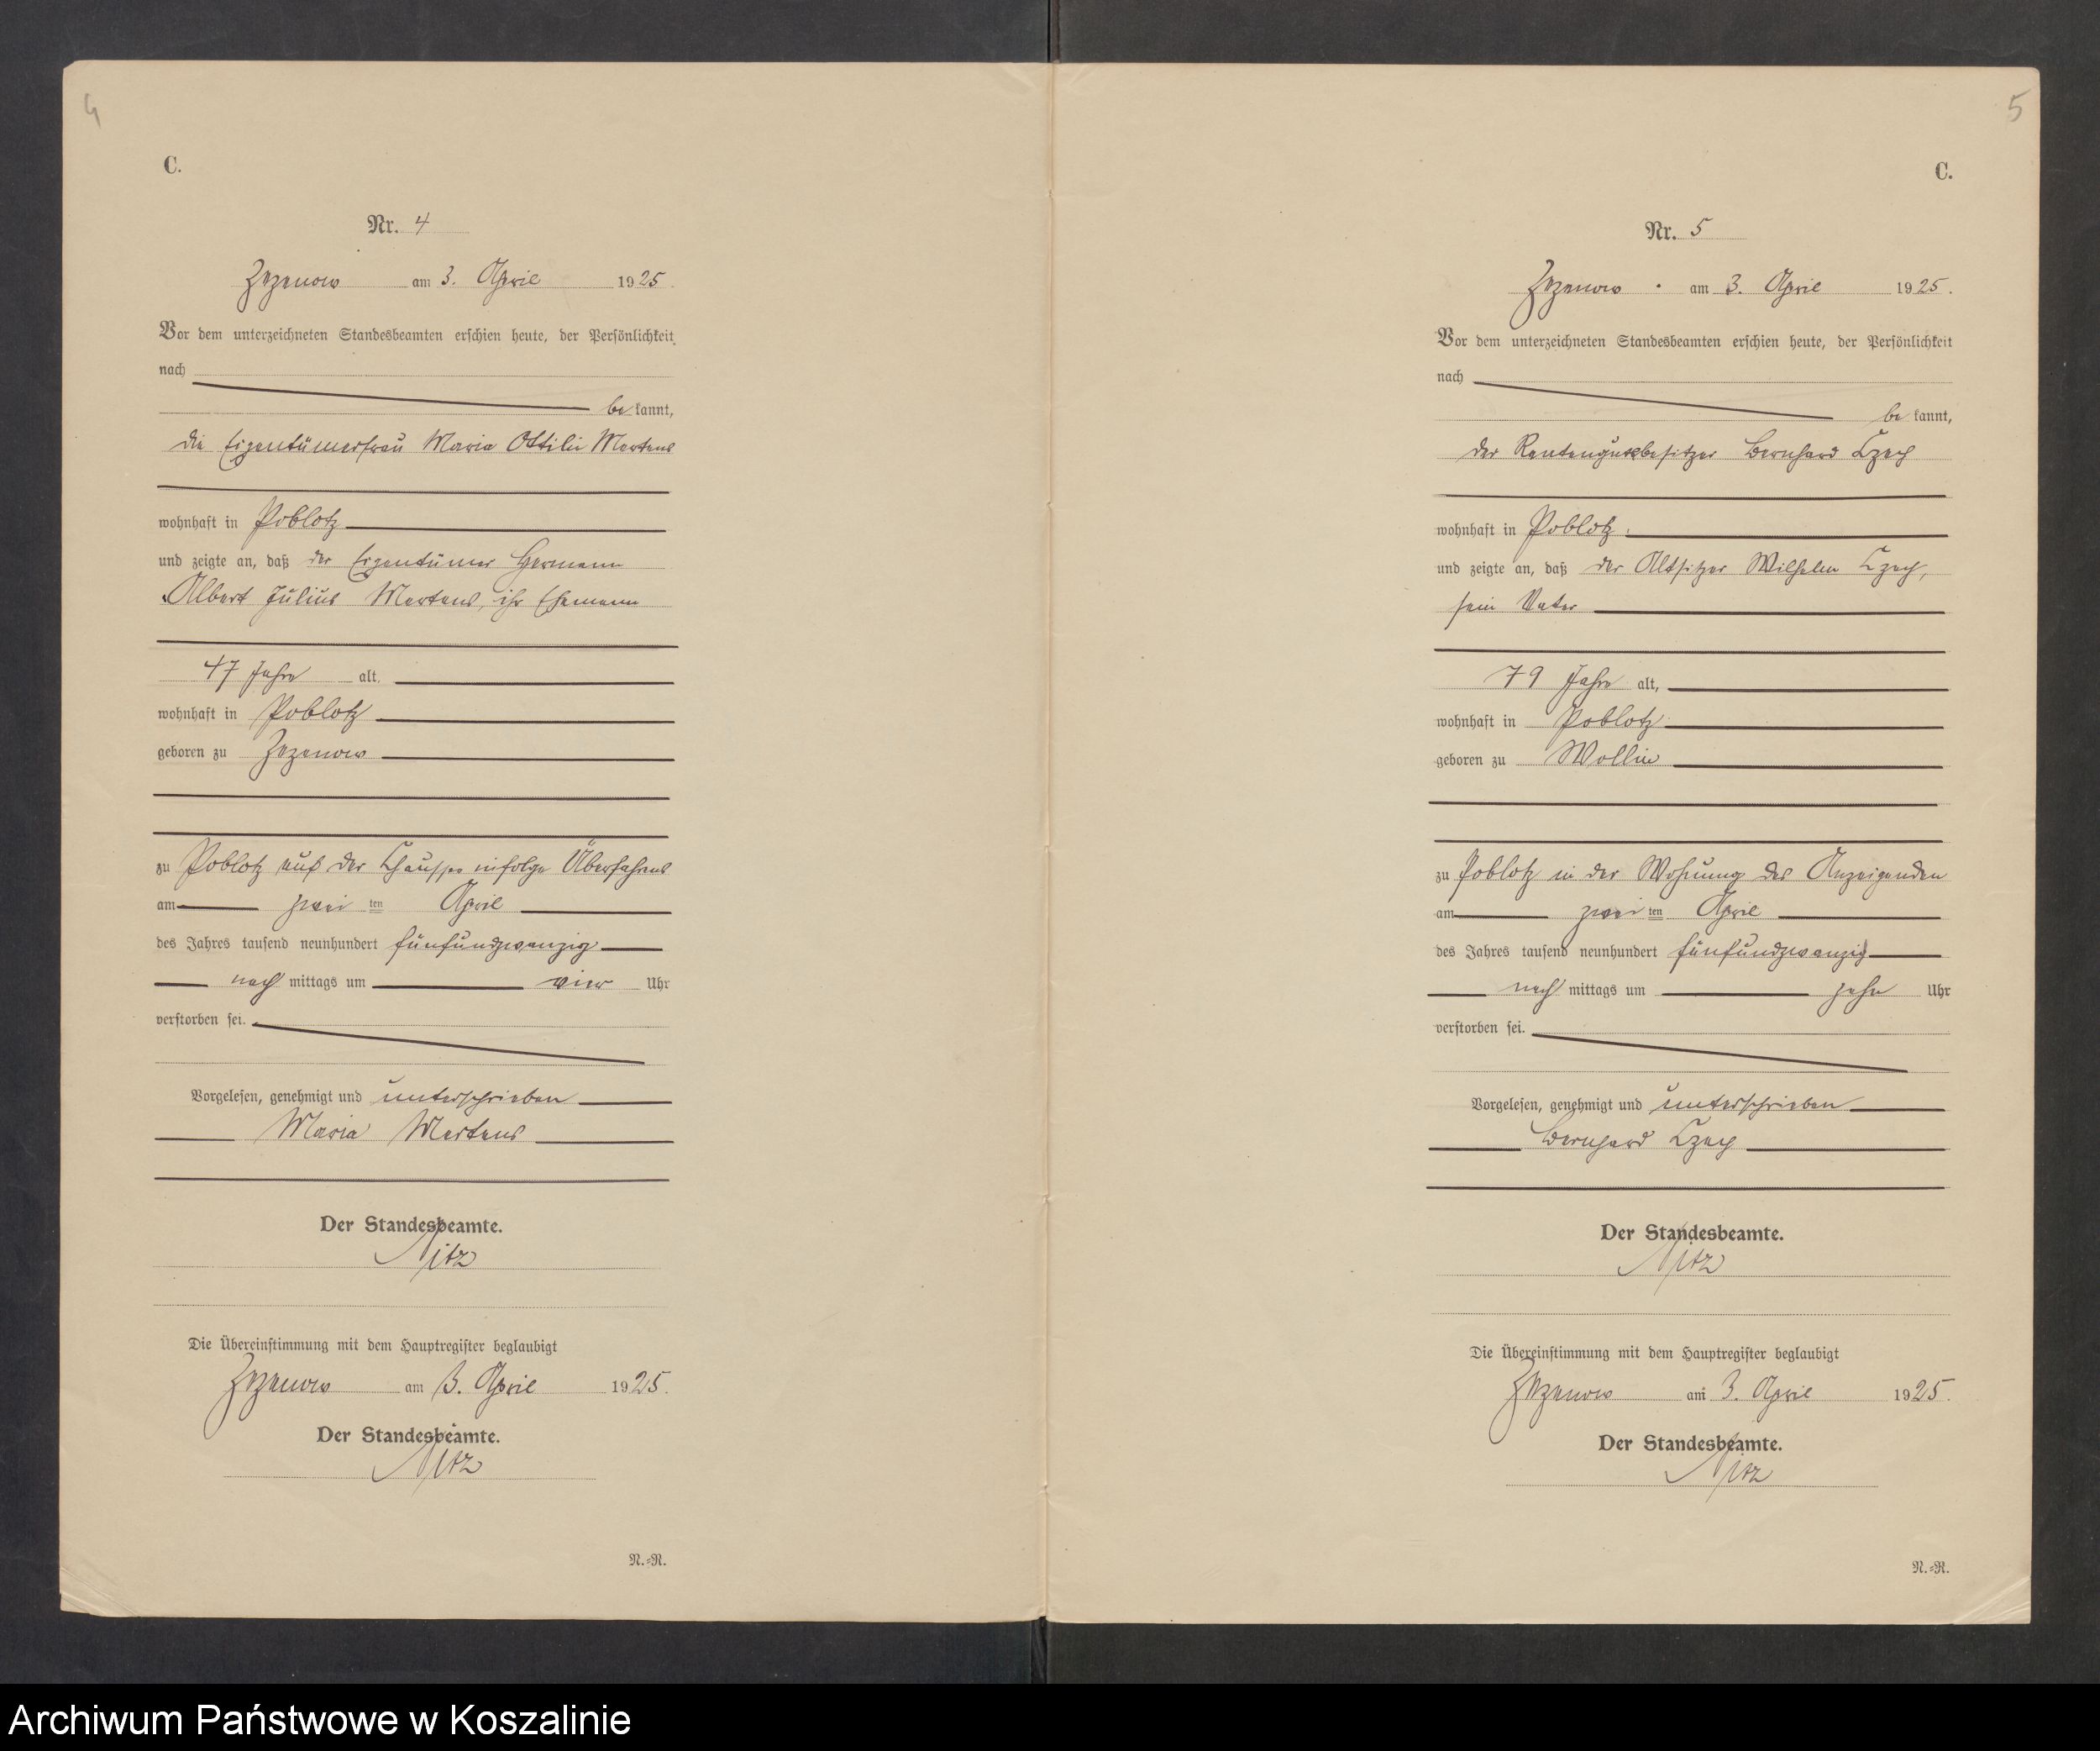 4
C.
Nr. 4
Zezenow am 3. April 1925.
Vor dem unterzeichneten Standesbeamten erschien heute, der Persönlichkeit
nach
be kannt,
die Eigentümerfrau Maria Ottilie Mertens
wohnhaft in Poblotz
und zeigte an, daß der Eigentümer Hermann
Albert Julius Mertens, ihr Ehemann
47 Jahre alt,
wohnhaft in Poblotz
geboren zu Zezenow
zu Poblotz auf der Chaussee infolge Überfahrens
am zwei ten April
des Jahres tausend neunhundert fünfundzwanzig
nach mittags um vier Uhr
verstorben sei.
Vorgelesen, genehmigt und unterschrieben
Maria Mertens
Der Standesbeamte.
Nitz
Die Übereinstimmung mit dem Hauptregister beglaubigt
Zezenow am 3. April 1925.
Der Standesbeamte.
Nitz
N.=R.
5
C.
Nr. 5
Zezenow am 3. April 1925.
Vor dem unterzeichneten Standesbeamten erschien heute, der Persönlichkeit
nach
be kannt,
der Rentengutsbesitzer Bernhard Czech
wohnhaft in Poblotz
und zeigte an, daß der Altsitzer Wilhelm Czech,
sein Vater
79 Jahre alt,
wohnhaft in Poblotz
geboren zu Wollin
zu Poblotz in der Wohnung des Anzeigenden
am zwei ten April
des Jahres tausend neunhundert fünfundzwanzig
nach mittags um zehn Uhr
verstorben sei.
Vorgelesen, genehmigt und unterschrieben
Bernhard Czech
Der Standesbeamte.
Nitz
Die Übereinstimmung mit dem Hauptregister beglaubigt
Zezenow am 3. April 1925.
Der Standesbeamte.
Nitz
N.=R.
Archiwum Państwowe w Koszalinie